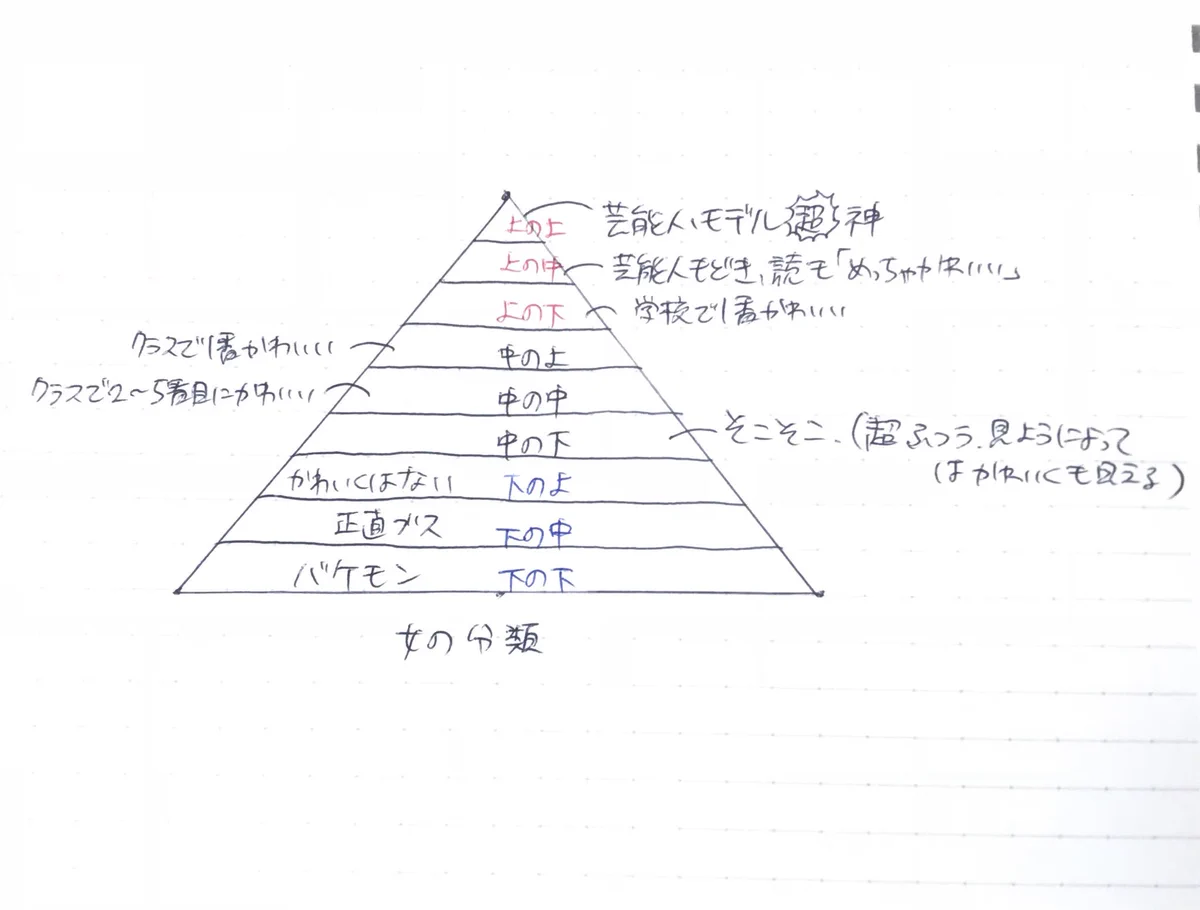 上の上 芸能人、モデル 超 神
上の中 芸能人もどき、読モ「めっちゃかわいい」
上の下 学校で1番かわいい
クラスで1番かわいい 中の上
クラスで2～5番目にかわいい 中の中
中の下 そこそこ、(超ふつう、見ようによって
はかわいくも見える)
かわいくはない 下の上
正直ブス 下の中
バケモン 下の下
女の分類